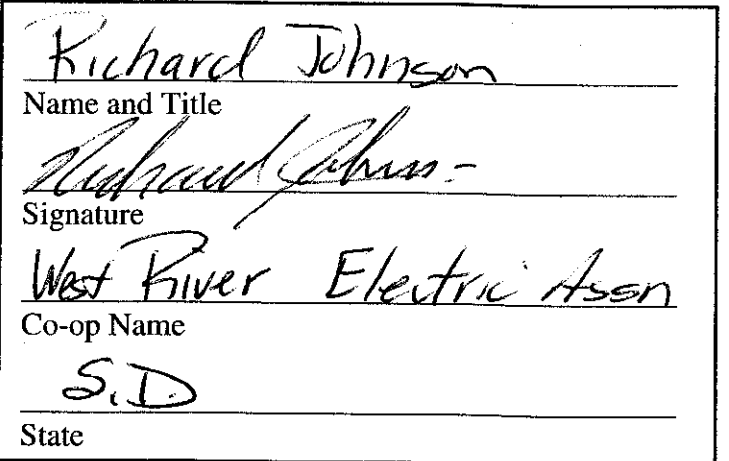 Richard Johnson
Name and Title
Richard Johnson
Signature
West River Electric Assn
Co-op Name
S.D.
State